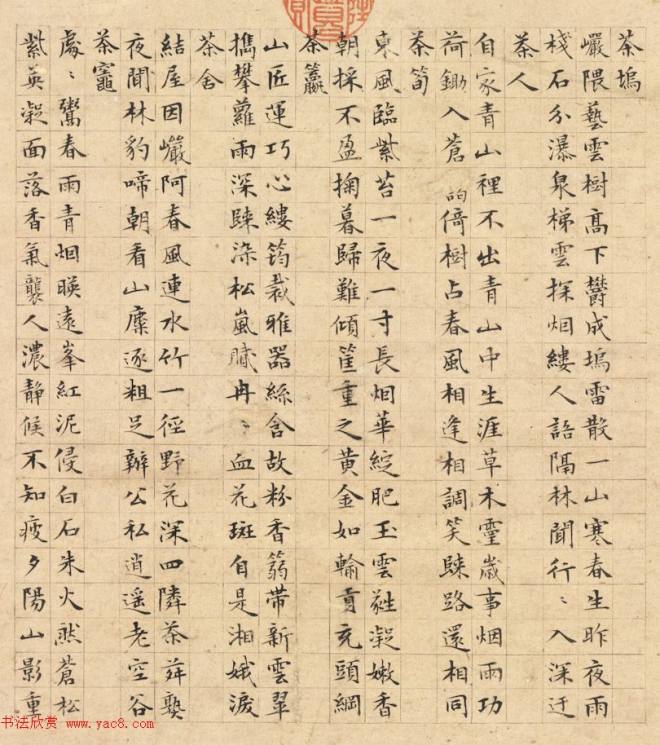 茶塢
巖隈藝雲樹高下欝成塢雷散一山寒春生昨夜雨
棧石分瀑泉梯雲探烟縷人語隔林聞行〻入深迂
茶人
自家青山裡不出青山中生涯草木靈歲事烟雨功
荷鋤入蒼倚樹占春風相逢相調笑踈路還相同
茶筍
東風臨紫苔一夜一寸長烟華綻肥玉雲蕤凝嫩香
朝採不盈掬暮歸難傾筐重之黄金如輸貢充頭綱
茶籯
山匠運巧心縷筠裁雅器絲含故粉香篛帶新雲翠
攜攀蘿雨深踈染松嵐膩冉〻血花斑自是湘娥淚
茶舍
結屋因巖阿春風連水竹一徑野花深四隣茶荈熟
夜聞林豹啼朝看山麋逐粗足辦公私逍遥老空谷
茶竈
處〻鬻春雨青烟暎遠峯紅泥侵白石朱火然蒼松
紫英凝面落香氣襲人濃静候不知疲夕陽山影重
书法欣赏 www.yac8.com